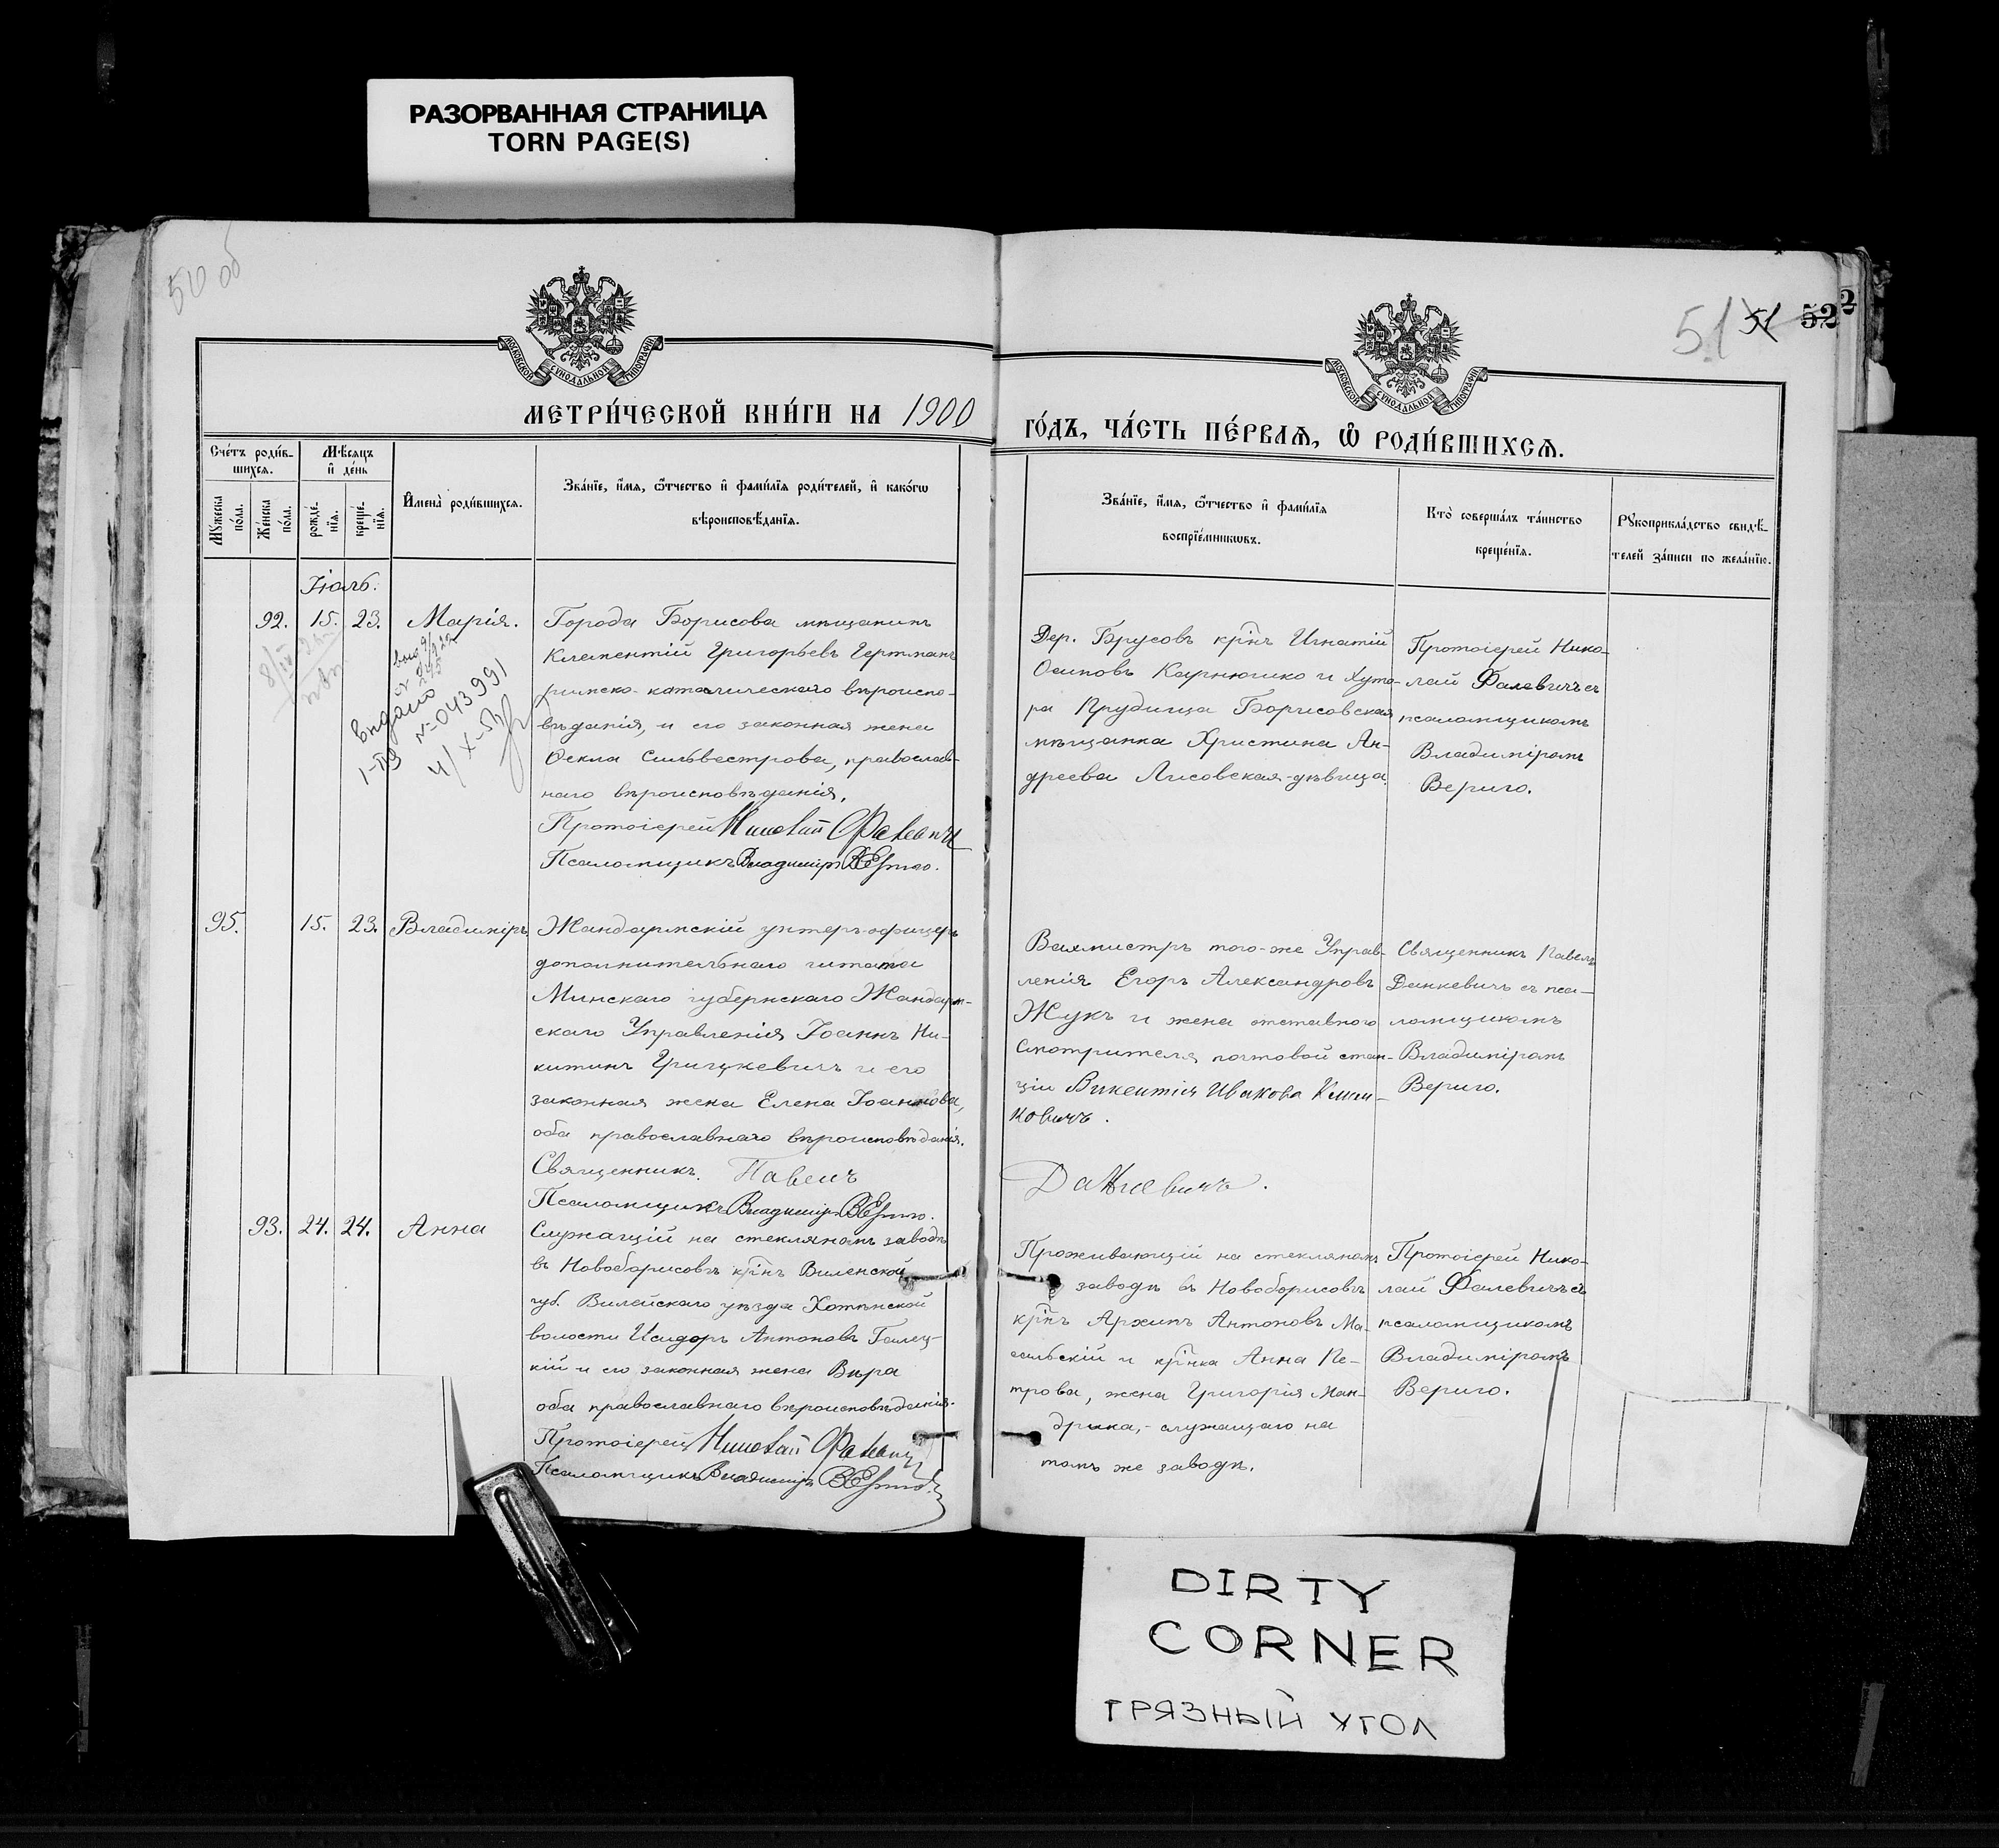 РАЗОРВАННАЯ СТРАНИЦА
TORN PAGE(S)
50 об
51 51 52 2
МОСКОВСКОЙ СѴНОДАЛЬНОЙ ТИПОГРАФІИ
МОСКОВСКОЙ СѴНОДАЛЬНОЙ ТИПОГРАФІИ
МЕТРИ́ЧЕСКОЙ КНИ́ГИ НА 1900
ГО́ДЪ, ЧА́СТЬ ПЕ́РВАѦ, Ѽ РОДИ́ВШИХСѦ.
Сче́тъ роди́в-
шихся.
Мꙋжеска по́ла.
Же́нска по́ла.
Мѣ́сяцъ
и҆ де́нь
рожде́-
нїѧ.
креще́-
нїѧ.
И҆мена̀ роди́вшихся.
Зва́нїе, и҆́мѧ, ѻ҆́тчество и҆ фами́лїѧ роди́телей, и҆ како́гѡ
вѣроисповѣ́данїѧ.
Зва́нїе, и҆́мѧ, ѻ҆́тчество и҆ фами́лїѧ
воспрїе́мникѡвъ.
Кто̀ соверша́лъ та́инство
креще́нїѧ.
Рꙋкоприкла́дство свидѣ́-
телей за́писи по жела́нїю.
Іюль.
92. 15. 23. Марія.
выдано
№-043991
Города Борисова мѣщанинъ
Климентій Григорьевъ Гертманъ
римско-католическаго вѣроиспо-
вѣданія, и его законная жена
Ѳекла Сильвестрова, православ-
наго вѣроисповѣданія.
Протоіерей Николай Фалевичъ
Псаломщикъ Владиміръ Вериго.
Дер. Брусовъ кр҃інъ Игнатій
Осиповъ Карнюшко и Хуто-
ра Прудища Борисовская
мѣщанка Христина Ан-
дреева Лисовская-дѣвица.
Протоіерей Нико-
лай Фалевичъ съ
псаломщикомъ
Владиміромъ
Вериго.
95. 15. 23. Владиміръ.
Жандармскій унтеръ-офицеръ
дополнительнаго штата
Минскаго губернскаго Жандарм-
скаго Управленія Іоаннъ Ни-
китинъ Грицкевичъ и его
законная жена Елена Іоаннова,
оба православнаго вѣроисповѣданія.
Священникъ Павелъ
Псаломщикъ Владиміръ Вериго.
Вахмистръ того-же Управ-
ленія Егоръ Александровъ
Жукъ и жена отставного
смотрителя почтовой стан-
ціи Викентія Ивакова Клим-
ковичъ.
Данкевичъ.
Священникъ Павелъ
Данкевичъ съ пса-
ломщикомъ
Владиміромъ
Вериго.
93. 24. 24. Анна
Служащій на стекляномъ заводѣ
въ Новоборисовѣ кр҃інъ Виленской
губ. Вилейскаго уѣзда Хотѣнской
волости Исидоръ Антоновъ Галец-
кій и его законная жена Вѣра
оба православнаго вѣроисповѣданія.
Протоіерей Николай Фалевичъ
Псаломщикъ Владиміръ Вериго.
Проживающій на стекляномъ
заводѣ въ Новоборисовѣ
кр҃інъ Архипъ Антоновъ Ма-
сальскій и кр҃інка Анна Пе-
трова, жена Григорія Ман-
дрика,- служащаго на
томъ же заводѣ.
Протоіерей Нико-
лай Фалевичъ съ
псаломщикомъ
Владиміромъ
Вериго.
DIRTY
CORNER
ГРЯЗНЫЙ УГОЛ